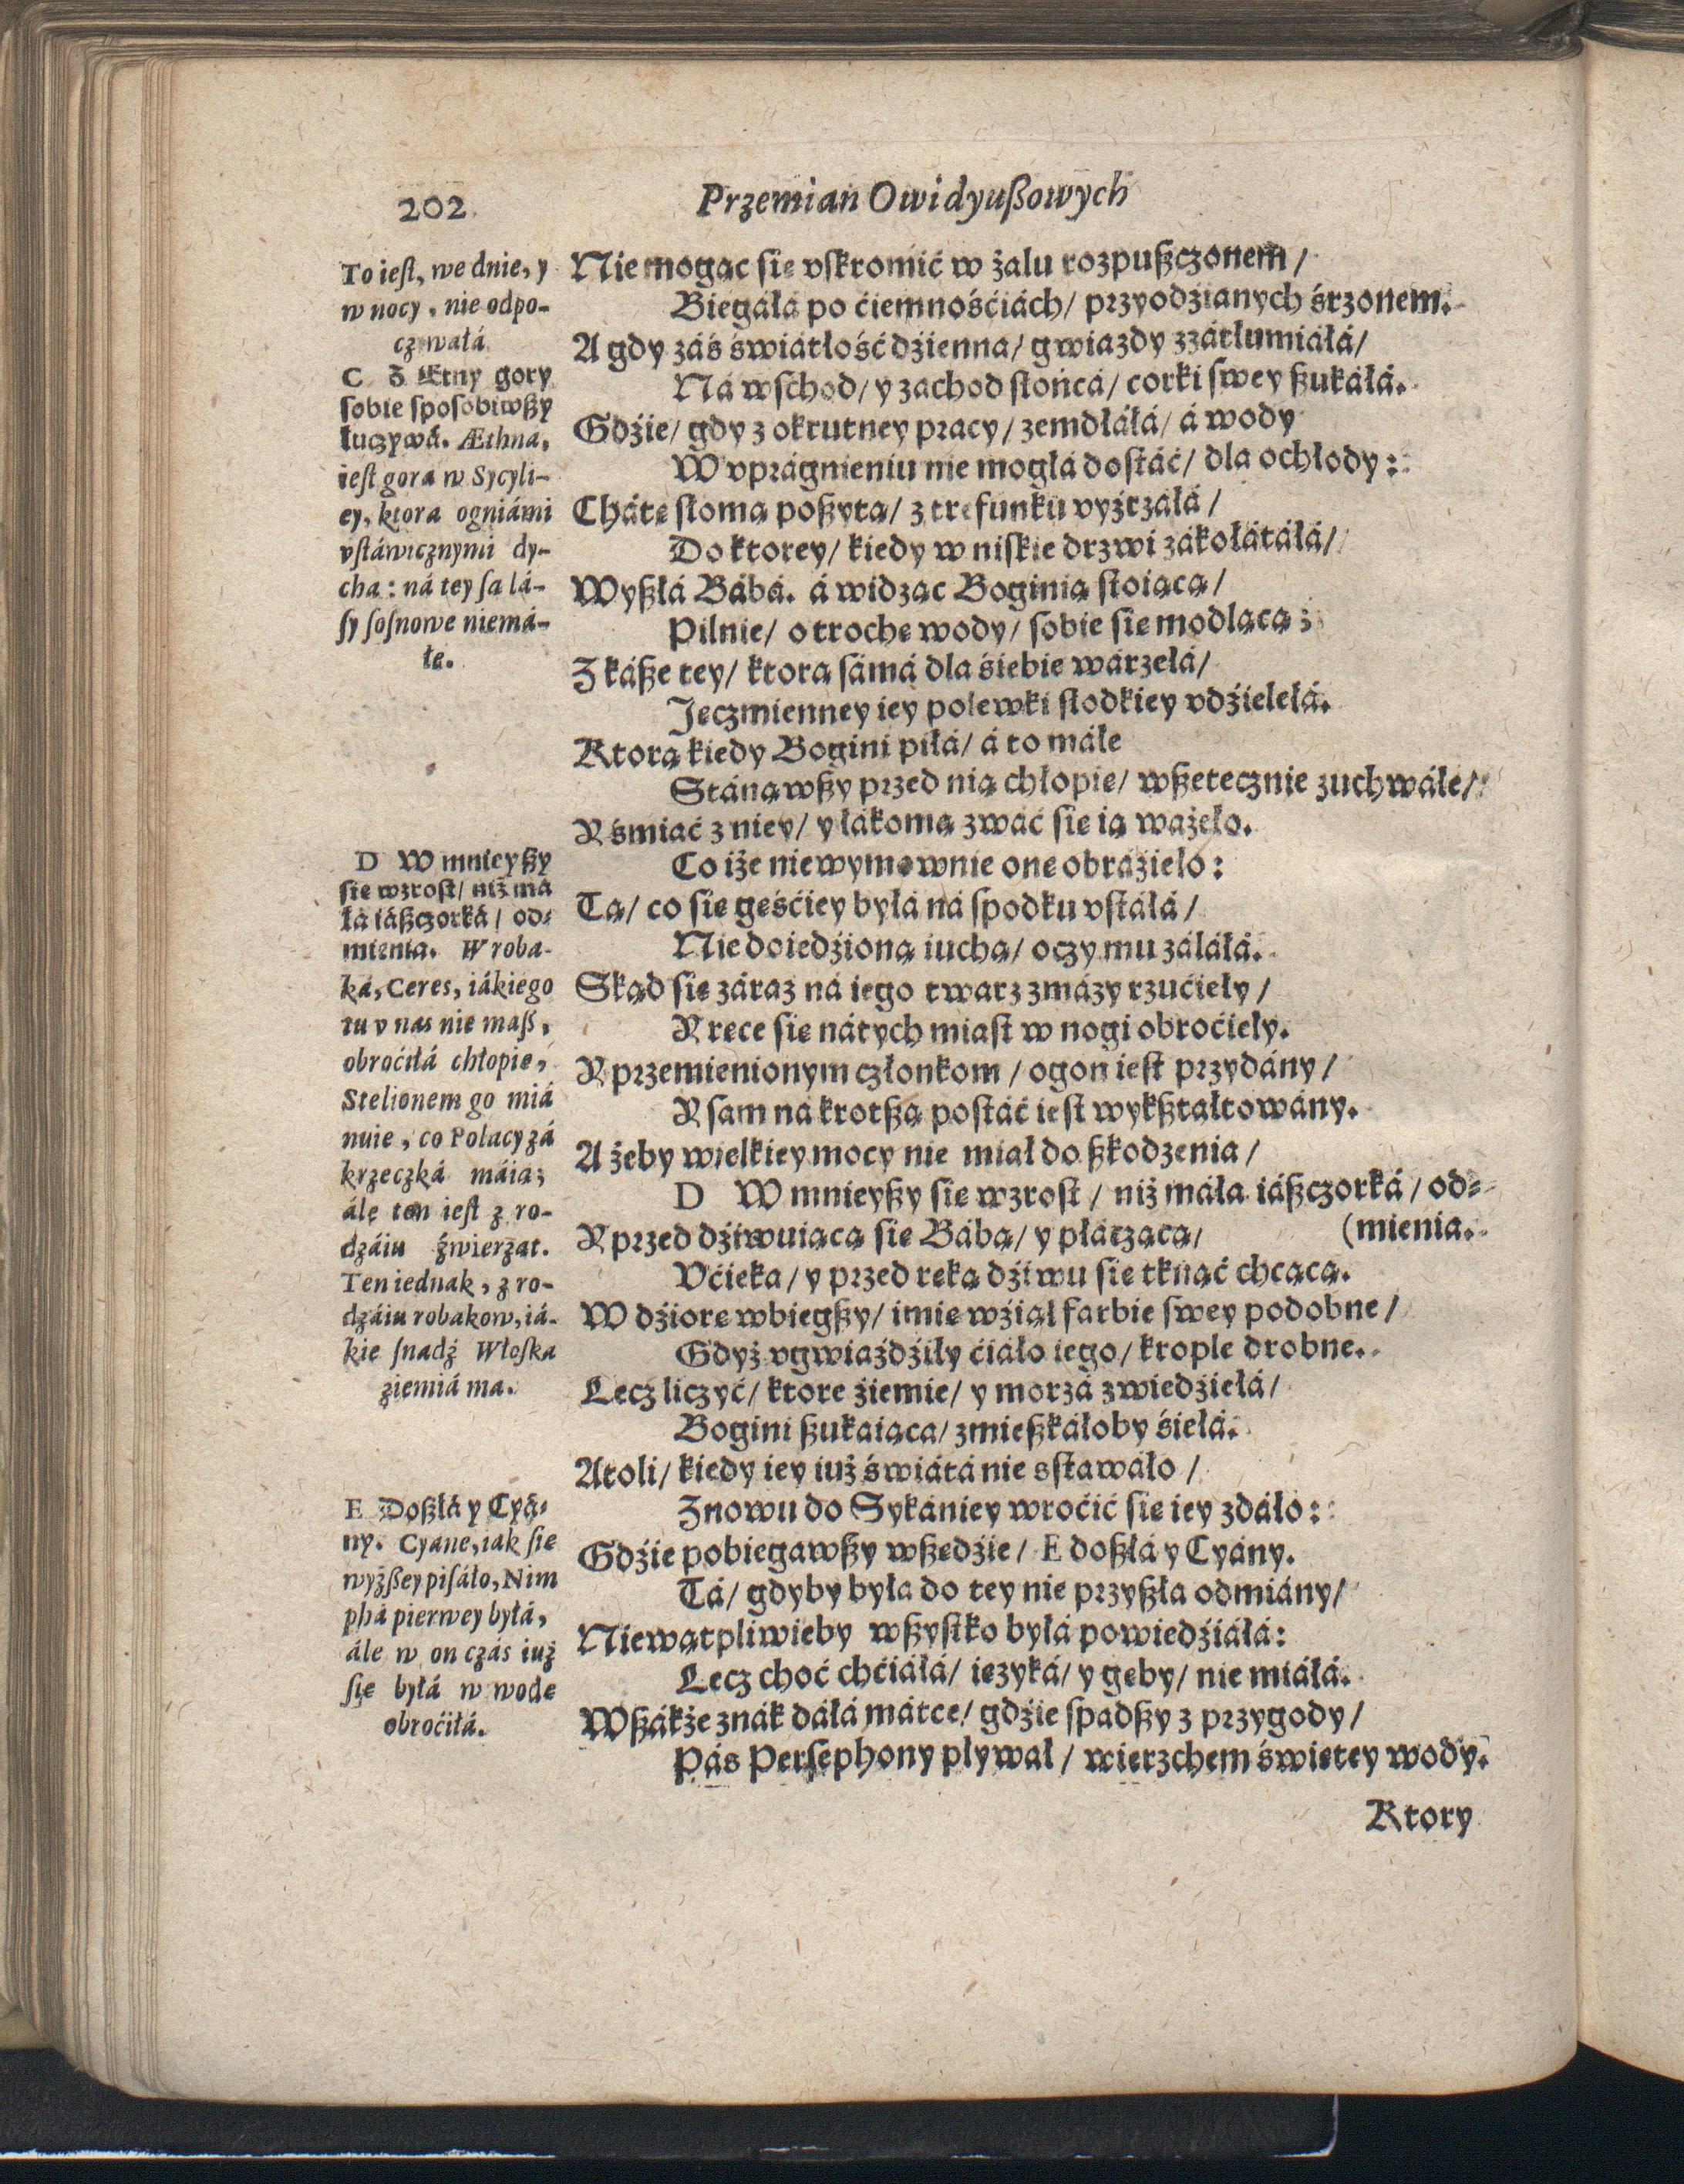 202
Przemian Owidyußowych
To iest, we dnie, y
w nocy, nie odpo-
czywałá
C Z Ætny gory
sobie sposobiwßy
łuczywá. Æthna,
iest gora w Sycyli-
ey, ktora ogniámi
vstáwicznymi dy-
cha: ná tey są lá-
sy sosnowe niemá-
łe.
D W mnieyßy
się wzrost/ niż má
ła iáßczorká/ od-
mienia. W roba-
ká, Ceres, iákiego
tu v nas nie maß,
obroćiłá chłopię,
Stelionem go miá
nuie, co Polacy zá
krzeczká máią;
ále ten iest z ro-
dzáiu źwierząt.
Ten iednak, z ro-
dzáiu robakow, iá-
kie snadź Włoska
ziemiá ma.
E Doßłá y Cyá-
ny. Cyane, iak się
wyżßey pisáło, Nim
phá pierwey byłá,
ále w on czás iuż
się byłá w wodę
obroćiłá.
Nie mogąc się vskromić w żalu rozpußczonem/
Biegáłá po ćiemnośćiách/ przyodzianych śrzonem.
A gdy záś świátłość dźienna/ gwiazdy zzátłumiáłá/
Ná wschod/ y zachod słońcá/ corki swey ßukáłá.
Gdźie/ gdy z okrutney pracy/ zemdłáłá/ á wody
W vprágnieniu nie mogłá dostáć/ dla ochłody:
Chátę słomą poßytą/ z trefunku vyźrzáłá/
Do ktorey/ kiedy w niskie drzwi zákołátáłá/
Wyßłá Bábá. á widząc Boginią stoiącą/
Pilnie/ o trochę wody/ sobie się modlącą;
Z káßę tey/ ktorą sámá dla śiebie wárzełá/
Jęczmienney iey polewki słodkiey vdźielełá.
Ktorą kiedy Bogini piłá/ á to máłe
Stánąwßy przed nią chłopię/ wßetecznie zuchwáłe/
Y śmiać z niey/ y łákomą zwáć się ią ważeło.
Co iże niewymownie onę obráźieło:
Tą/ co się gęśćiey byłá ná spodku vstáłá/
Nie doiedźioną iuchą/ oczy mu záláłá.
Skąd się záraz ná iego twarz zmázy rzućieły/
Y ręce się nátych miast w nogi obroćieły.
Y przemienionym członkom/ ogon iest przydány/
Y sam ná krotßą postáć iest wykßtałtowány.
A żeby wielkiey mocy nie miał do ßkodzenia/
D W mnieyßy się wzrost/ niż máła iáßczorká/ od-
(mienia.
Y przed dźiwuiącą się Bábą/ y płáczącą/
Vćieka/ y przed ręką dźiwu się tknąć chcącą.
W dźiorę wbiegßy/ imię wźiął farbie swey podobne/
Gdyż vgwiaźdźiły ćiáło iego/ krople drobne.
Lecz liczyć/ ktore źiemie/ y morzá zwiedźiełá/
Bogini ßukaiąca/ zmießkáłoby śiełá.
Atoli/ kiedy iey iuż świátá nie sstawáło/
Znowu do Sykániey wroćić się iey zdáło:
Gdźie pobiegawßy wßędźie/ E doßłá y Cyány.
Tá/ gdyby była do tey nie przyßła odmiány/
Niewątpliwieby wßystko byłá powiedźiáłá:
Lecz choć chćiáłá/ ięzyká/ y gęby/ nie miáłá.
Wßákże znák dáłá mátce/ gdźie spadßy z przygody/
Pás Persephony pływał/ wierzchem świętey wody.
Ktory